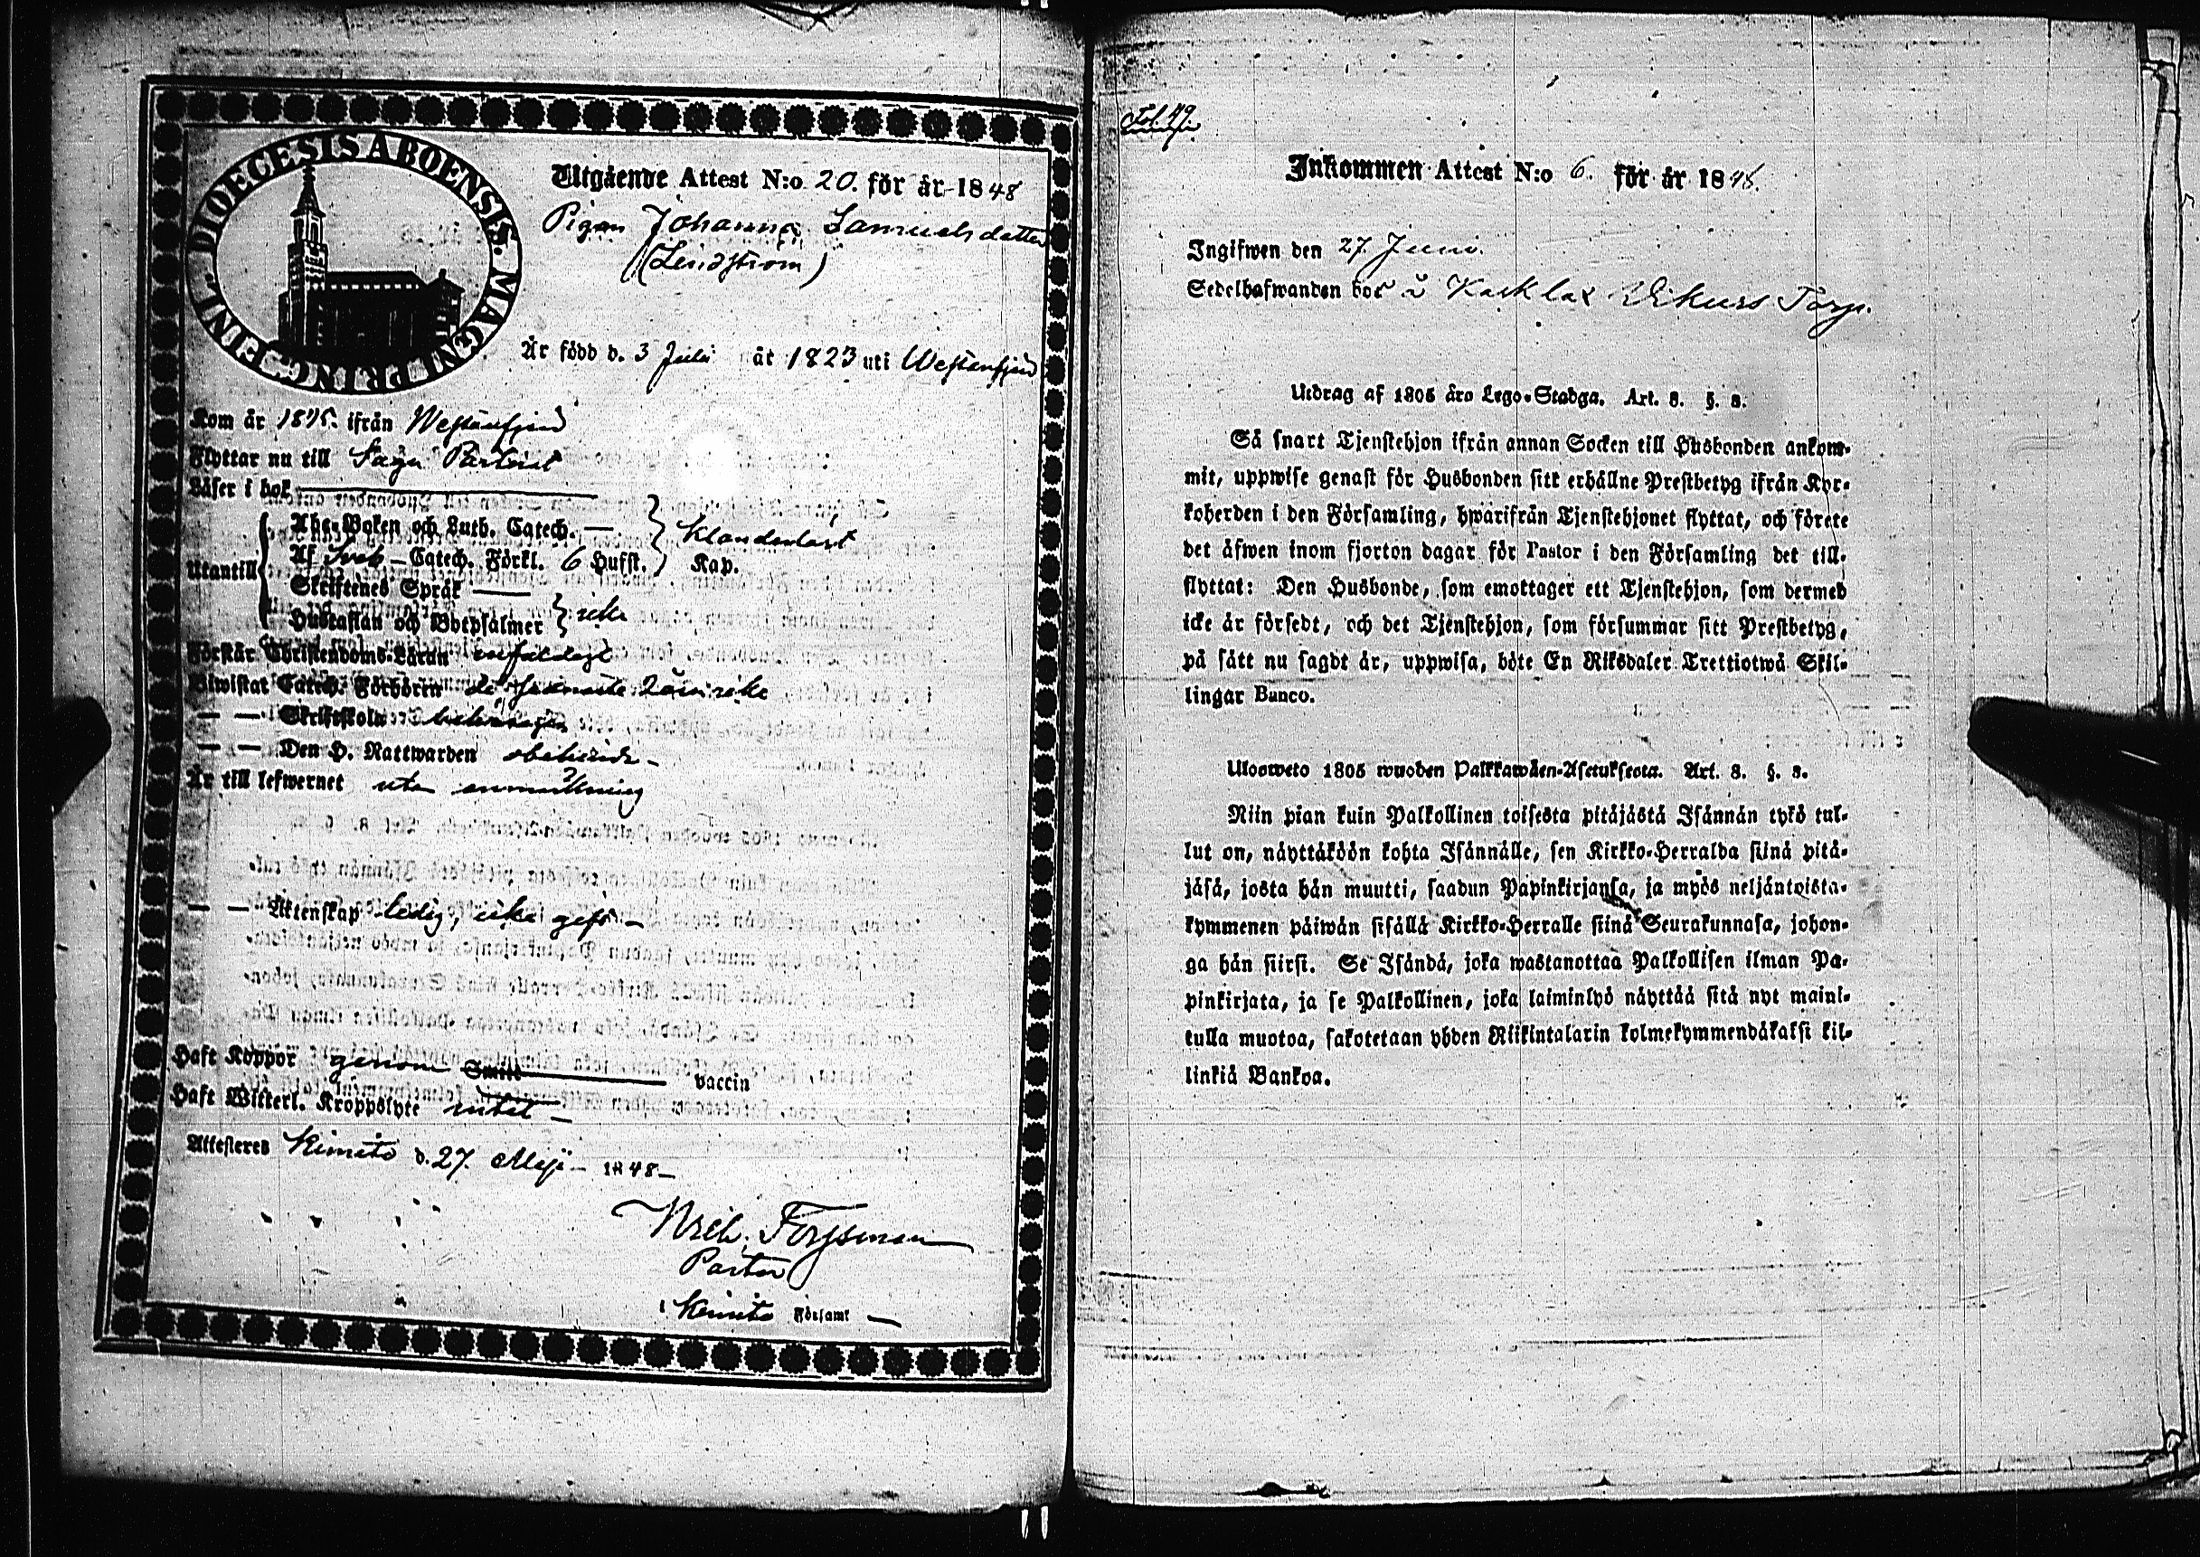 DIOECESIS ABOENSIS. MAGNI PRINC. FINL.
Utgående Attest N:o 20. för år 1848
Pigan Johanna Samuelsdotter
(Lindström)
Är född d. 3 Julii år 1823 uti Westanfjerd
Kom år 1845. ifrån Westanfjerd
Flyttar nu till Sagu
Läser i bok
Abc-Boken och Luth. Catech. —
Utantill Af Sveb — Catech. Förkl. 6 Hufst. Kap.
Skriftenes Språk —
Hustaflan och Botpsalmer icke
Förstår Christendoms-Läran enfaldigt
Biwistat Catech. Förhören de
— — Skriftskola
— — Den H. Nattwarden obehindr —
Är till lefwernet utan anmärkning
— — Äktenskap ledig, icke
Haft Koppor genom Smitt vaccin
Haft Witterl. Kroppslyte intet —
Attesteras Kimito d. 27. Maji — 1848 —
Wilh. Forssman
Pastor
i Kimito Församl —
Fol. 49.
Inkommen Attest N:o 6. för år 1848.
Ingifwen den 27. Juni.
Sedelhafwanden bor å Karklax Vikars Torp.
Utdrag af 1805 års Lego-Stadga. Art. 8. §. 8.
Så snart Tjenstehjon ifrån annan Socken till Husbonden ankom-
mit, uppwise genast för Husbonden sitt erhållne Prestbetyg ifrån Kyr-
koherden i den Församling, hwarifrån Tjenstehjonet flyttat, och förete
det äfwen inom fjorton dagar för Pastor i den Församling det till-
flyttat: Den Husbonde, som emottager ett Tjenstehjon, som dermed
icke är försedt, och det Tjenstehjon, som försummar sitt Prestbetyg,
på sätt nu sagdt är, uppwisa, böte En Riksdaler Trettiotwå Skil-
lingar Banco.
Ulosweto 1805 wuoden Palkkawäen-Asetuksesta. Art. 8. §. 8.
Niin pian kuin Palkollinen toisesta pitäjästä Isännän tykö tul-
lut on, näyttäköön kohta Isännälle, sen Kirkko-Herralda siinä pitä-
jäsä, josta hän muutti, saadun Papinkirjansa, ja myös neljäntoista-
kymmenen päiwän sisällä Kirkko-Herralle siinä Seurakunnasa, johon-
ga hän siirsi. Se Isändä, joka wastanottaa Palkollisen ilman Pa-
pinkirjata, ja se Palkollinen, joka laiminlyö näyttää sitä nyt maini-
tulla muotoa, sakotetaan yhden Riikintalarin kolmekymmendäkaksi kil-
linkiä Bankoa.